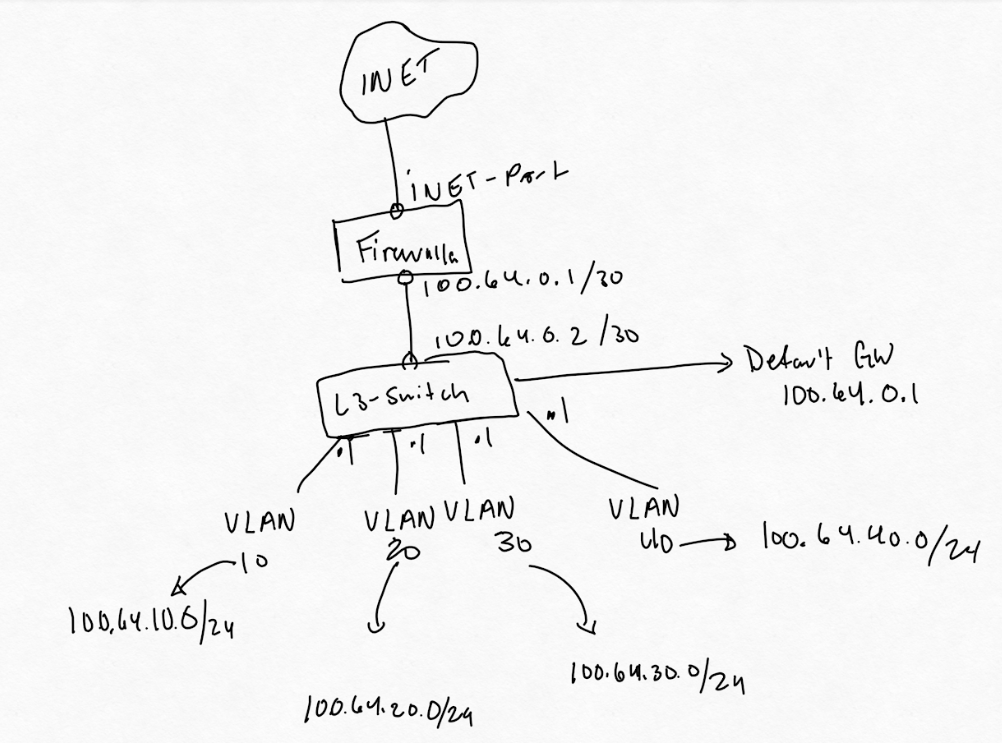 INET
iNET-Port
Firewalla
100.64.0.1/30
100.64.0.2/30
Default GW
100.64.0.1
L3-Switch
.1
.1
.1
.1
VLAN
10
VLAN
20
VLAN
30
VLAN
40
100.64.40.0/24
100.64.10.0/24
100.64.30.0/24
100.64.20.0/24